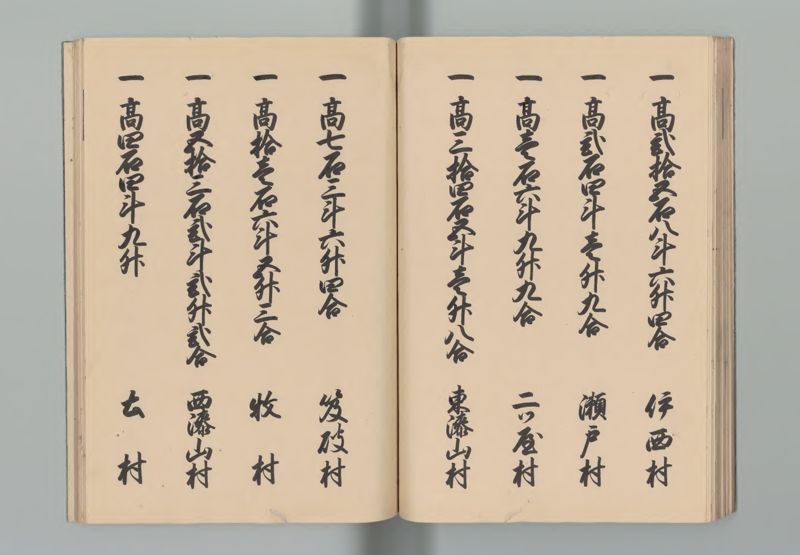 一 高弐拾五石八斗六升四合 伊西村
一 高弐石四斗壱升九合 瀬戸村
一 高壱石六斗九升九合 二ツ屋村
一 高三拾四石五斗壱升八合 東漆山村
一 高七石三斗六升四合 笈破村
一 高拾壱石六斗五升三合 牧村
一 高五拾三石弐斗弐升弐合 西漆山村
一 高四石四斗九升 土村